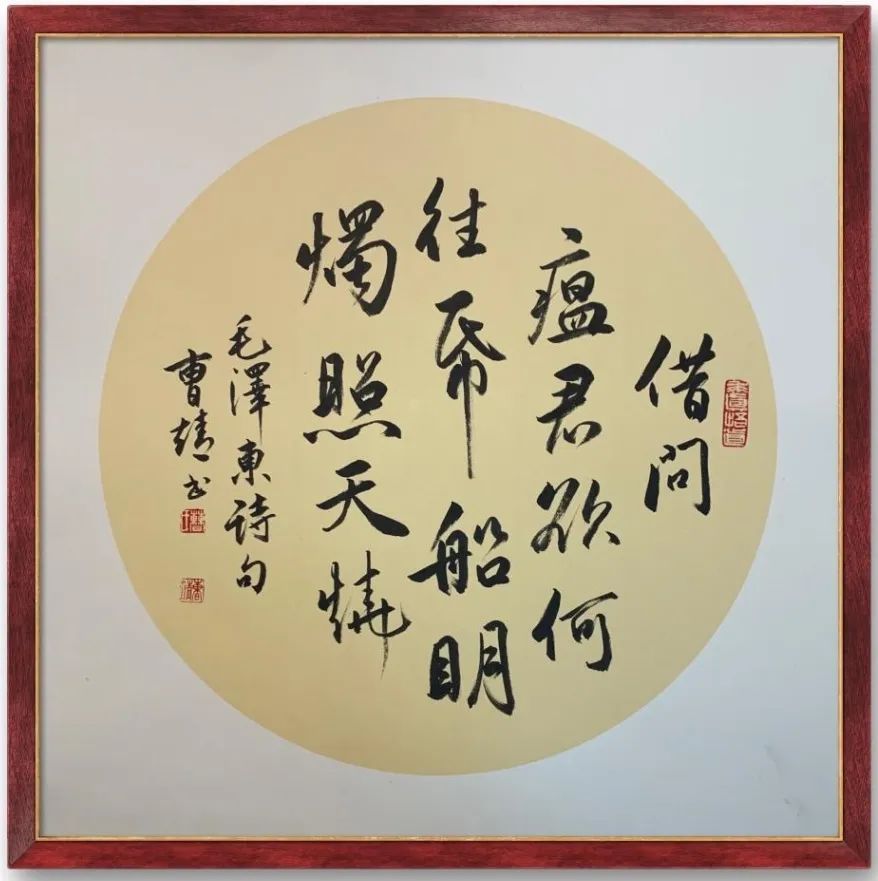 借問
瘟君欲何
往帋船明
燭照天燒
毛澤東诗句
曹靖书